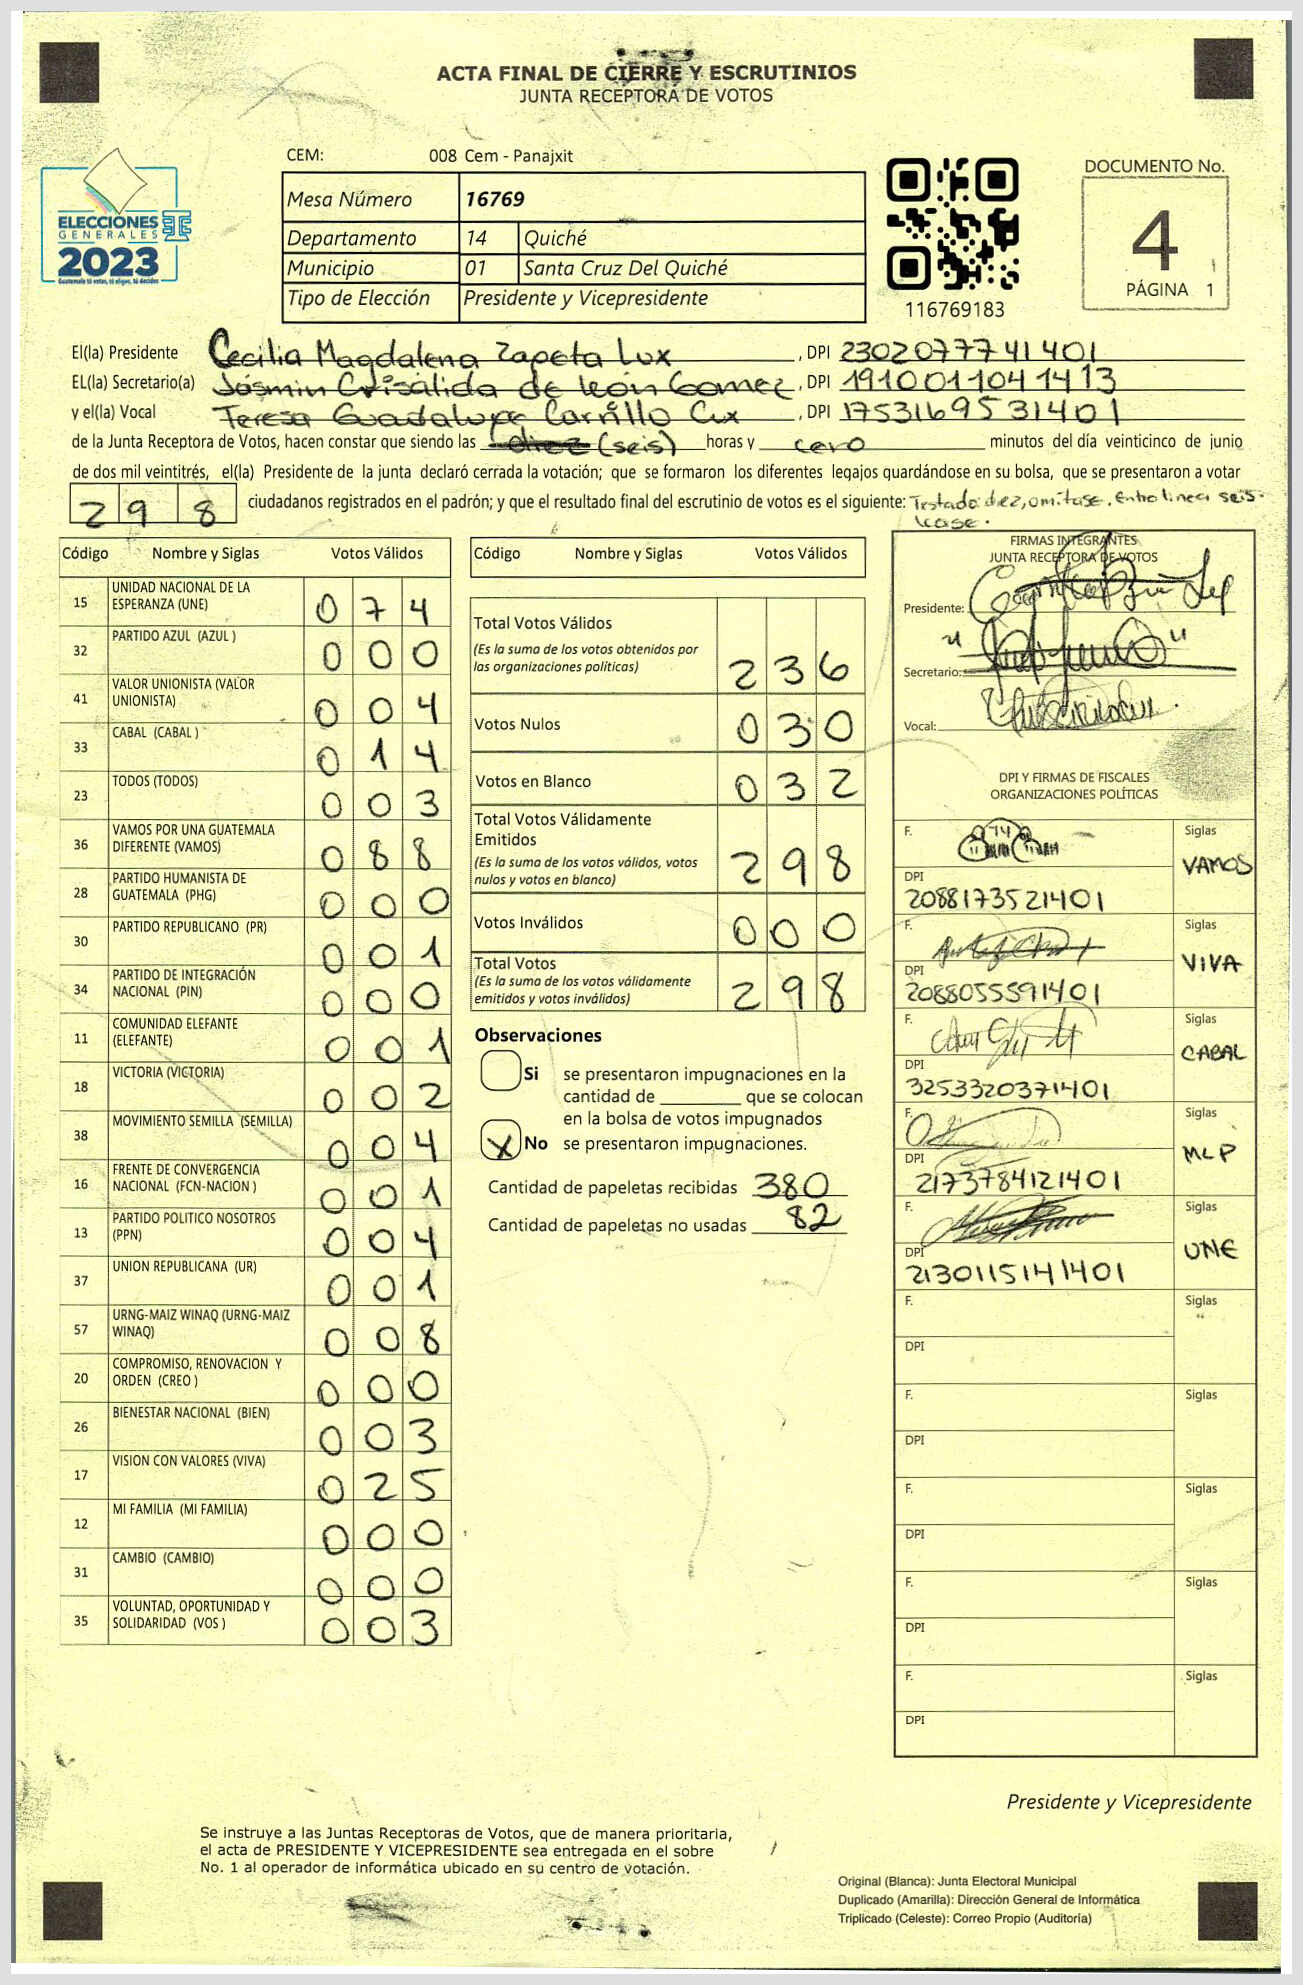 ACTA FINAL DE CIERRE Y ESCRUTINIOS
JUNTA RECEPTORA DE VOTOS
CEM: 008 Cem - Panajxit
ELECCIONES
GENERALES
2023
Guatemala tú votas, tú eliges, tú decides
Mesa Número 16769
Departamento 14 Quiché
Municipio 01 Santa Cruz Del Quiché
Tipo de Elección Presidente y Vicepresidente
116769183
DOCUMENTO No.
4
PÁGINA 1
El(la) Presidente Cecilia Magdalena Zapeta Lux, DPI 2302077741401
EL(la) Secretario(a) Jasmin Crisálida de león Gomez, DPI 1910011041413
y el(la) Vocal Teresa Guadalupe Carrillo Cux, DPI 1753169531401
de la Junta Receptora de Votos, hacen constar que siendo las diez (seis) horas y cero minutos del día veinticinco de junio
de dos mil veintitrés, el(la) Presidente de la junta declaró cerrada la votación; que se formaron los diferentes legajos quardándose en su bolsa, que se presentaron a votar
298 ciudadanos registrados en el padrón; y que el resultado final del escrutinio de votos es el siguiente: Testado diez, omitase. Entre linea seis.
lease.
Código Nombre y Siglas Votos Válidos
15 UNIDAD NACIONAL DE LA
ESPERANZA (UNE) 074
32 PARTIDO AZUL (AZUL ) 000
41 VALOR UNIONISTA (VALOR
UNIONISTA) 004
33 CABAL (CABAL ) 014
23 TODOS (TODOS) 003
36 VAMOS POR UNA GUATEMALA
DIFERENTE (VAMOS) 088
28 PARTIDO HUMANISTA DE
GUATEMALA (PHG) 000
30 PARTIDO REPUBLICANO (PR) 001
34 PARTIDO DE INTEGRACIÓN
NACIONAL (PIN) 000
11 COMUNIDAD ELEFANTE
(ELEFANTE) 001
18 VICTORIA (VICTORIA) 002
38 MOVIMIENTO SEMILLA (SEMILLA) 004
16 FRENTE DE CONVERGENCIA
NACIONAL (FCN-NACION ) 001
13 PARTIDO POLITICO NOSOTROS
(PPN) 004
37 UNION REPUBLICANA (UR) 001
57 URNG-MAIZ WINAQ (URNG-MAIZ
WINAQ) 008
20 COMPROMISO, RENOVACION Y
ORDEN (CREO ) 000
26 BIENESTAR NACIONAL (BIEN) 003
17 VISION CON VALORES (VIVA) 025
12 MI FAMILIA (MI FAMILIA) 000
31 CAMBIO (CAMBIO) 000
35 VOLUNTAD, OPORTUNIDAD Y
SOLIDARIDAD (VOS ) 003
Código Nombre y Siglas Votos Válidos
Total Votos Válidos
(Es la suma de los votos obtenidos por
las organizaciones políticas) 236
Votos Nulos 030
Votos en Blanco 032
Total Votos Válidamente
Emitidos
(Es la suma de los votos válidos, votos
nulos y votos en blanco) 298
Votos Inválidos 000
Total Votos
(Es la suma de los votos válidamente
emitidos y votos inválidos) 298
Observaciones
Si se presentaron impugnaciones en la
cantidad de ________ que se colocan
en la bolsa de votos impugnados
X No se presentaron impugnaciones.
Cantidad de papeletas recibidas 380
Cantidad de papeletas no usadas 82
FIRMAS INTEGRANTES
JUNTA RECEPTORA DE VOTOS
Presidente:
Secretario:
Vocal:
DPI Y FIRMAS DE FISCALES
ORGANIZACIONES POLÍTICAS
F. Siglas
VAMOS
DPI
2088173521401
F. Siglas
VIVA
DPI
2088055591401
F. Siglas
CABAL
DPI
3253320371401
F. Siglas
MLP
DPI
2173784121401
F. Siglas
UNE
DPI
2130115141401
F. Siglas
DPI
F. Siglas
DPI
F. Siglas
DPI
F. Siglas
DPI
F. Siglas
DPI
Presidente y Vicepresidente
Se instruye a las Juntas Receptoras de Votos, que de manera prioritaria,
el acta de PRESIDENTE Y VICEPRESIDENTE sea entregada en el sobre
No. 1 al operador de informática ubicado en su centro de votación.
Original (Blanca): Junta Electoral Municipal
Duplicado (Amarilla): Dirección General de Informática
Triplicado (Celeste): Correo Propio (Auditoría)